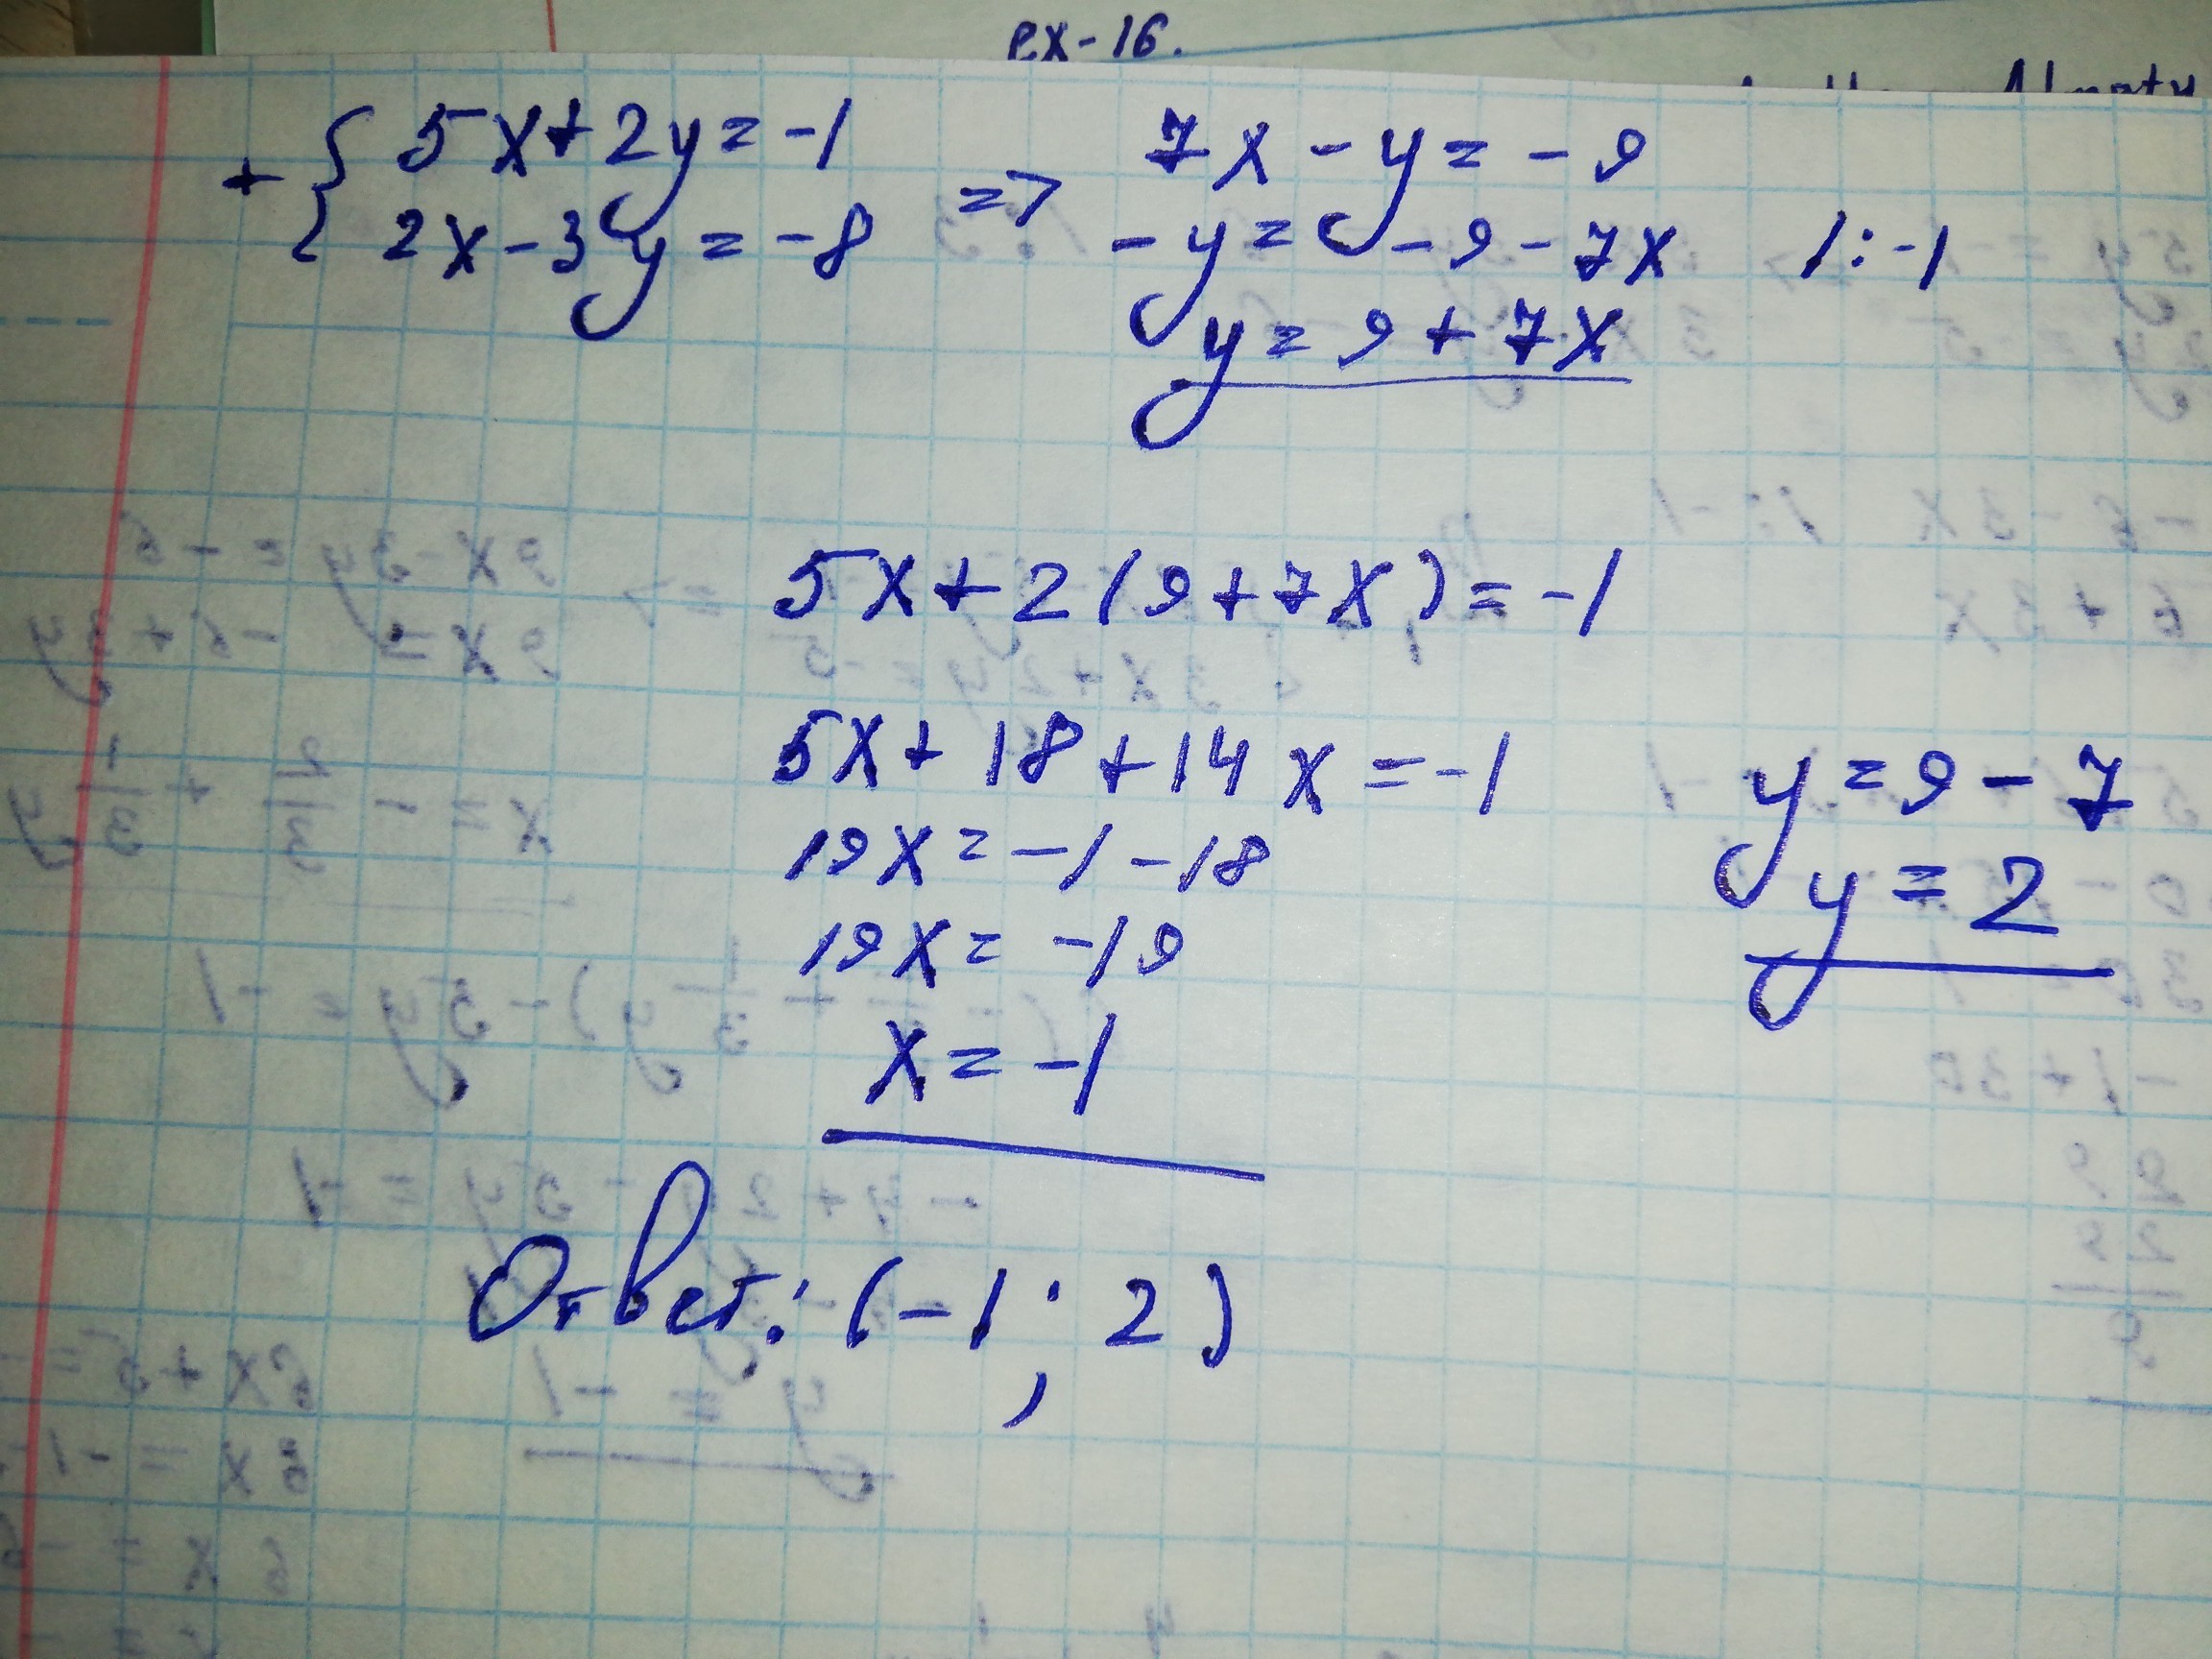 ex-16.
Almaty
+ { 5x+2y=-1 => 7x-y=-9
2x-3y=-8 -y=-9-7x /:-1
y=9+7x
5x+2(9+7x)=-1
5x+18+14x=-1 y=9-7
19x=-1-18 y=2
19x=-19
x=-1
Ответ: (-1; 2)